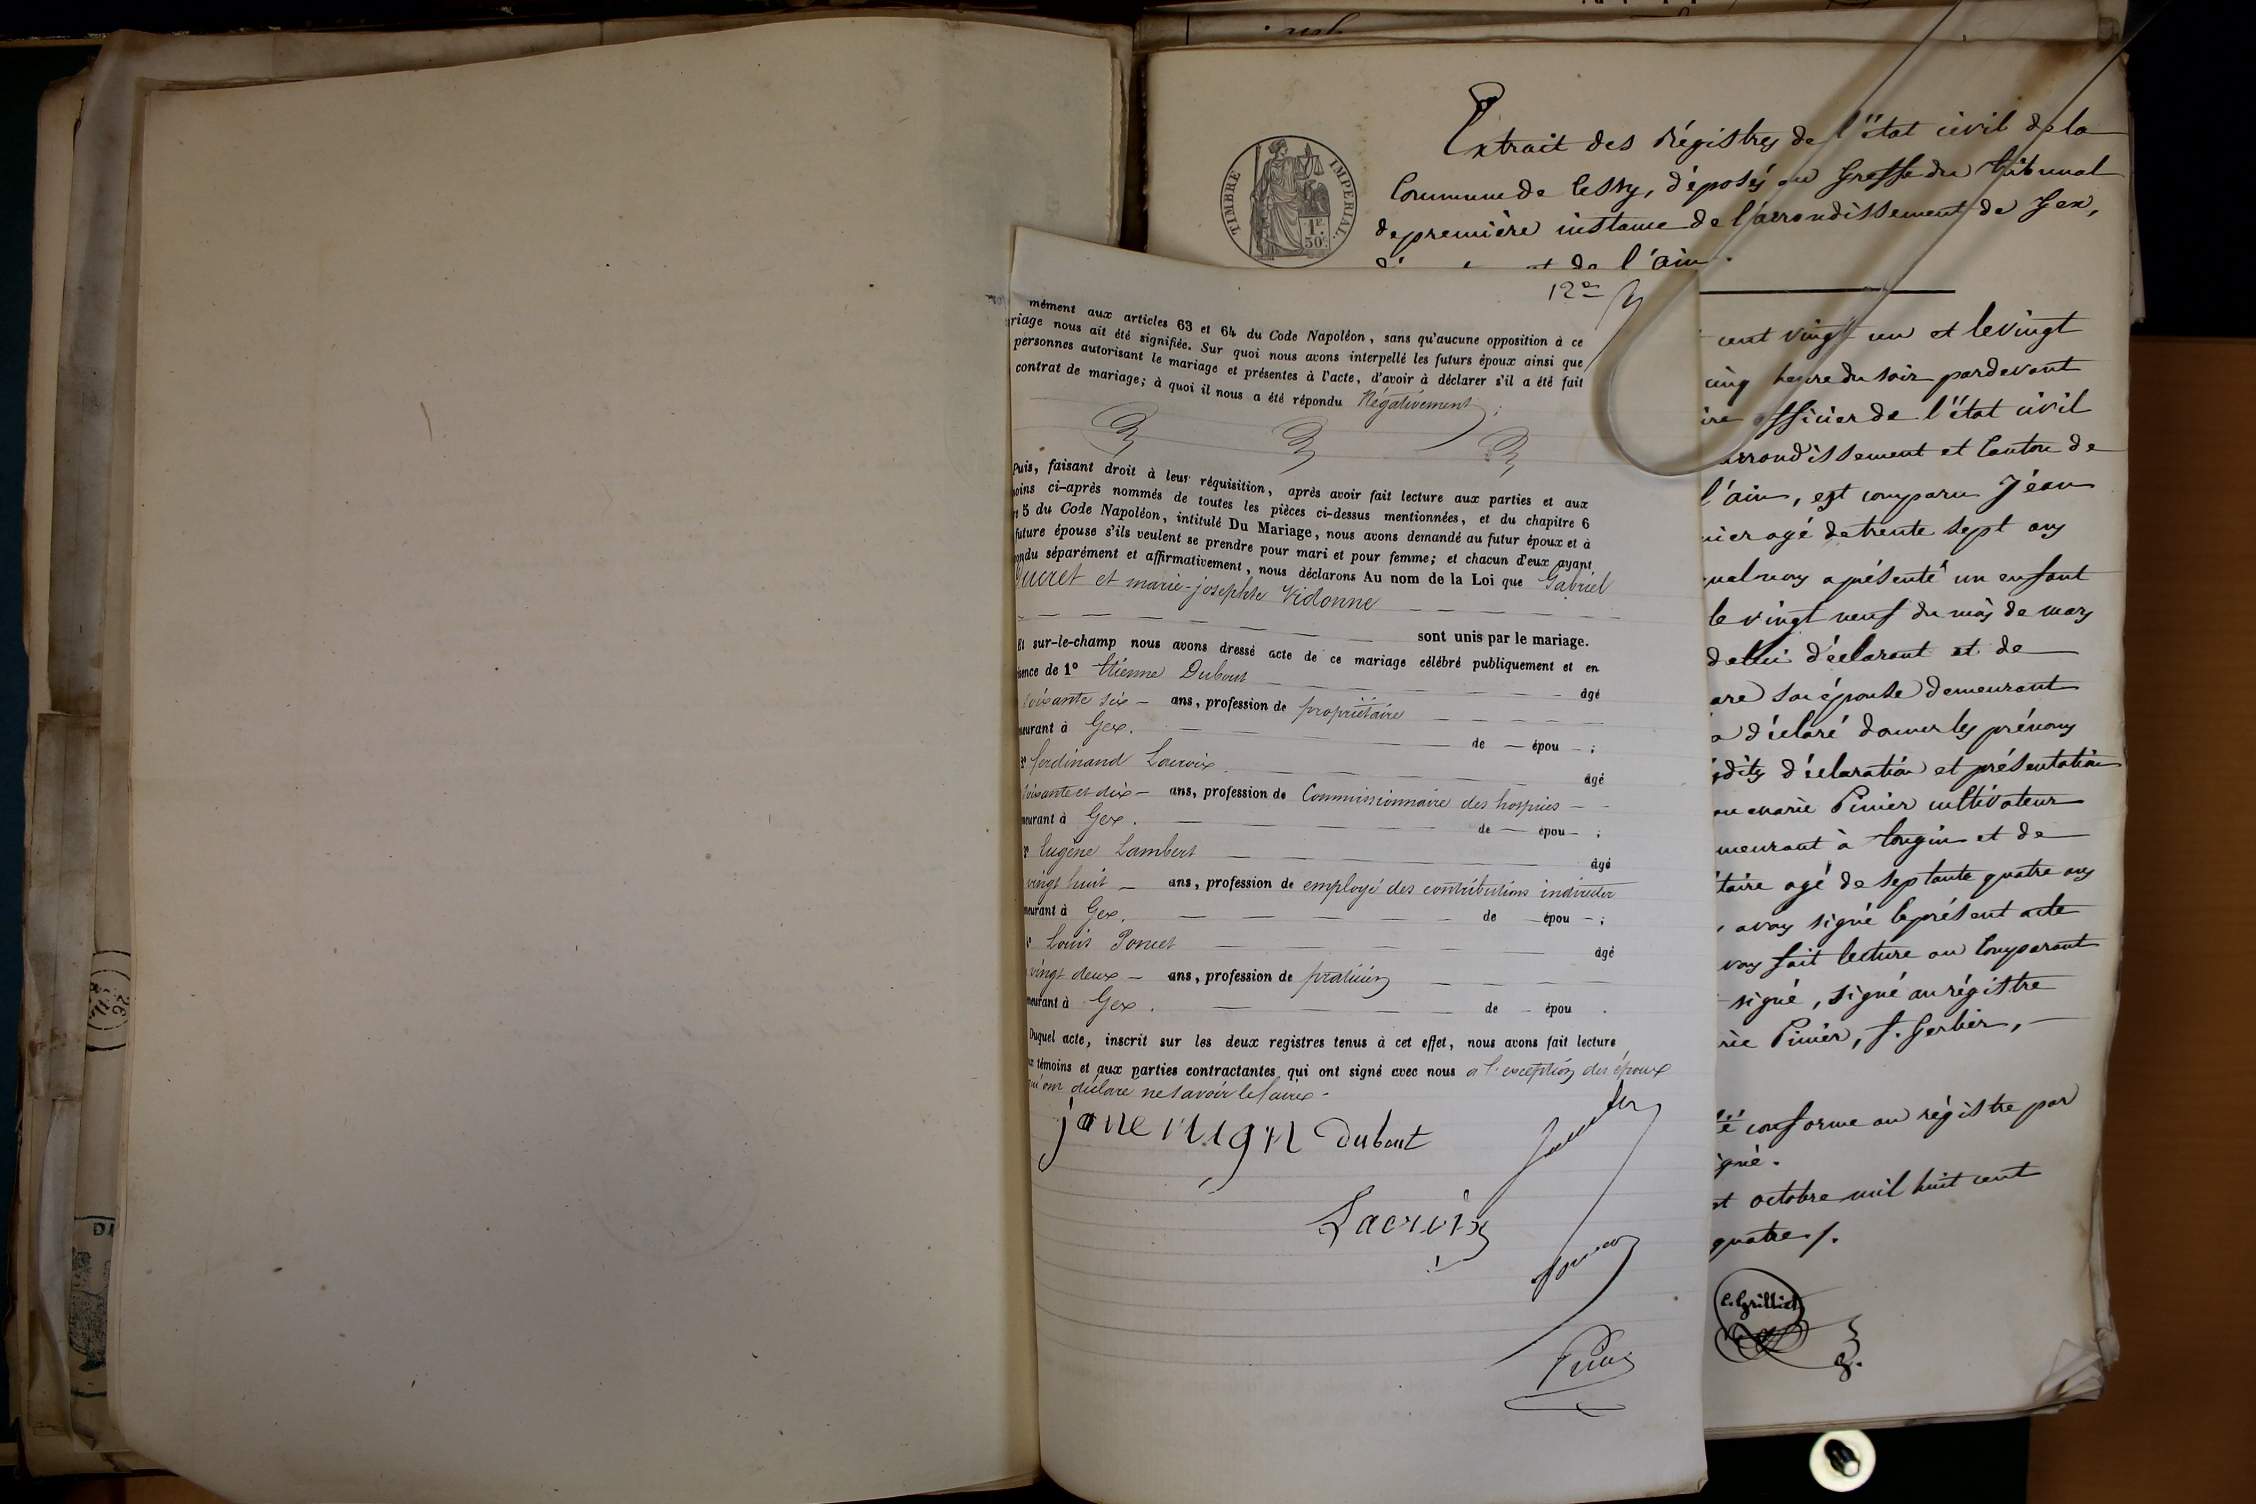 Extrait des Régistres de l'état civil de la
Commune de Cessy, déposés au Greffe du tribunal
de première instance de l'arrondissement de Gex,
de l'ain.
TIMBRE IMPERIAL
1F
50c
12e
cent vingt un et le vingt
cinq heure du soir pardevant
officier de l'état civil
arrondissement et Canton de
l'ain, est comparu Jéan
agé de trente sept ans
a présenté un enfant
le vingt neuf du mois de mars
de lui déclarant et de
son épouse demeurant
a déclaré donner les prénoms
déclaration et présentation
marie Pinier cultivateur
meurant à tougin et de
taire agé de septante quatre ans
avons signé le présent acte
fait lecture au Comparant
signé, signé au régistre
Pinier, f. Gerbier,
conforme au régistre par
igné.
octobre mil huit cent
quatre /.
mément aux articles 63 et 64 du Code Napoléon, sans qu'aucune opposition à ce
riage nous ait été signifiée. Sur quoi nous avons interpellé les futurs époux ainsi que
personnes autorisant le mariage et présentes à l'acte, d'avoir à déclarer s'il a été fait
contrat de mariage; à quoi il nous a été répondu Négativement;
Puis, faisant droit à leur réquisition, après avoir fait lecture aux parties et aux
moins ci-après nommés de toutes les pièces ci-dessus mentionnées, et du chapitre 6
5 du Code Napoléon, intitulé Du Mariage, nous avons demandé au futur époux et à
future épouse s'ils veulent se prendre pour mari et pour femme; et chacun d'eux ayant
ondu séparément et affirmativement, nous déclarons Au nom de la Loi que Gabriel
Ducret et marie-josephte Vidonne
sont unis par le mariage.
Et sur-le-champ nous avons dressé acte de ce mariage célébré publiquement et en
sence de 1º Etienne Dubout âgé
soixante six ans, profession de propriétaire
meurant à Gex. de épou ;
ferdinand Lacroix âgé
soixante et dix ans, profession de Commissionnaire des hospices
meurant à Gex. de épou ;
Eugène Lambert âgé
vingt huit ans, profession de employé des contributions indirectes
meurant à Gex. de épou ;
Louis Poncet âgé
vingt deux ans, profession de praticien
meurant à Gex. de épou .
Duquel acte, inscrit sur les deux registres tenus à cet effet, nous avons fait lecture
témoins et aux parties contractantes qui ont signé avec nous à l'exception des époux
qui ont déclaré ne savoir le faire
Dubout
Lacroix